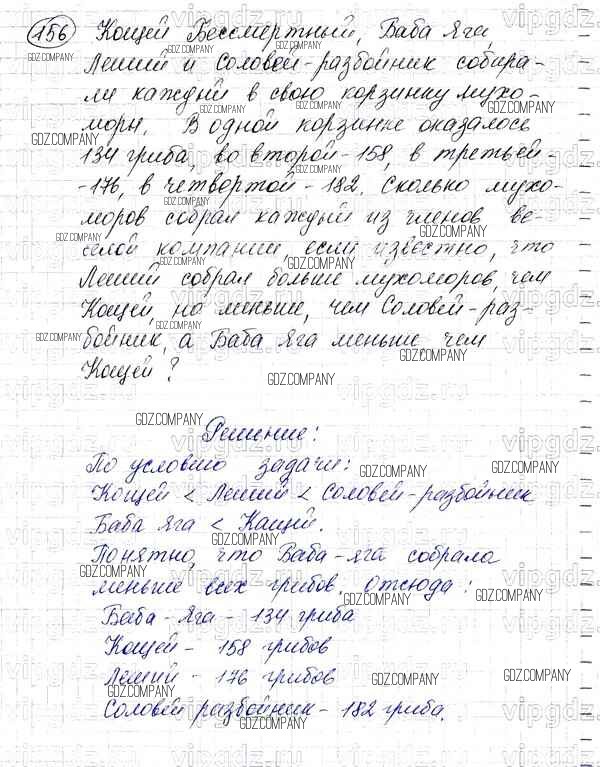 156 Кощей Бессмертный, Баба Яга,
Леший и Соловей-разбойник собира-
ли каждый в свою корзинку мухо-
моры. В одной корзинке оказалось
134 гриба, во второй - 158, в третьей -
-176, в четвертой - 182. Сколько мухо-
моров собрал каждый из членов ве-
селой компании, если известно, что
Леший собрал больше мухоморов, чем
Кощей, но меньше, чем Соловей-раз-
бойник, а Баба Яга меньше чем
Кощей?
Решение:
По условию задачи:
Кощей < Леший < Соловей-разбойник
Баба Яга < Кащей.
Понятно, что Баба-Яга собрала
меньше всех грибов, отсюда:
Баба-Яга - 134 гриба
Кощей - 158 грибов
Леший - 176 грибов
Соловей разбойник - 182 гриба.